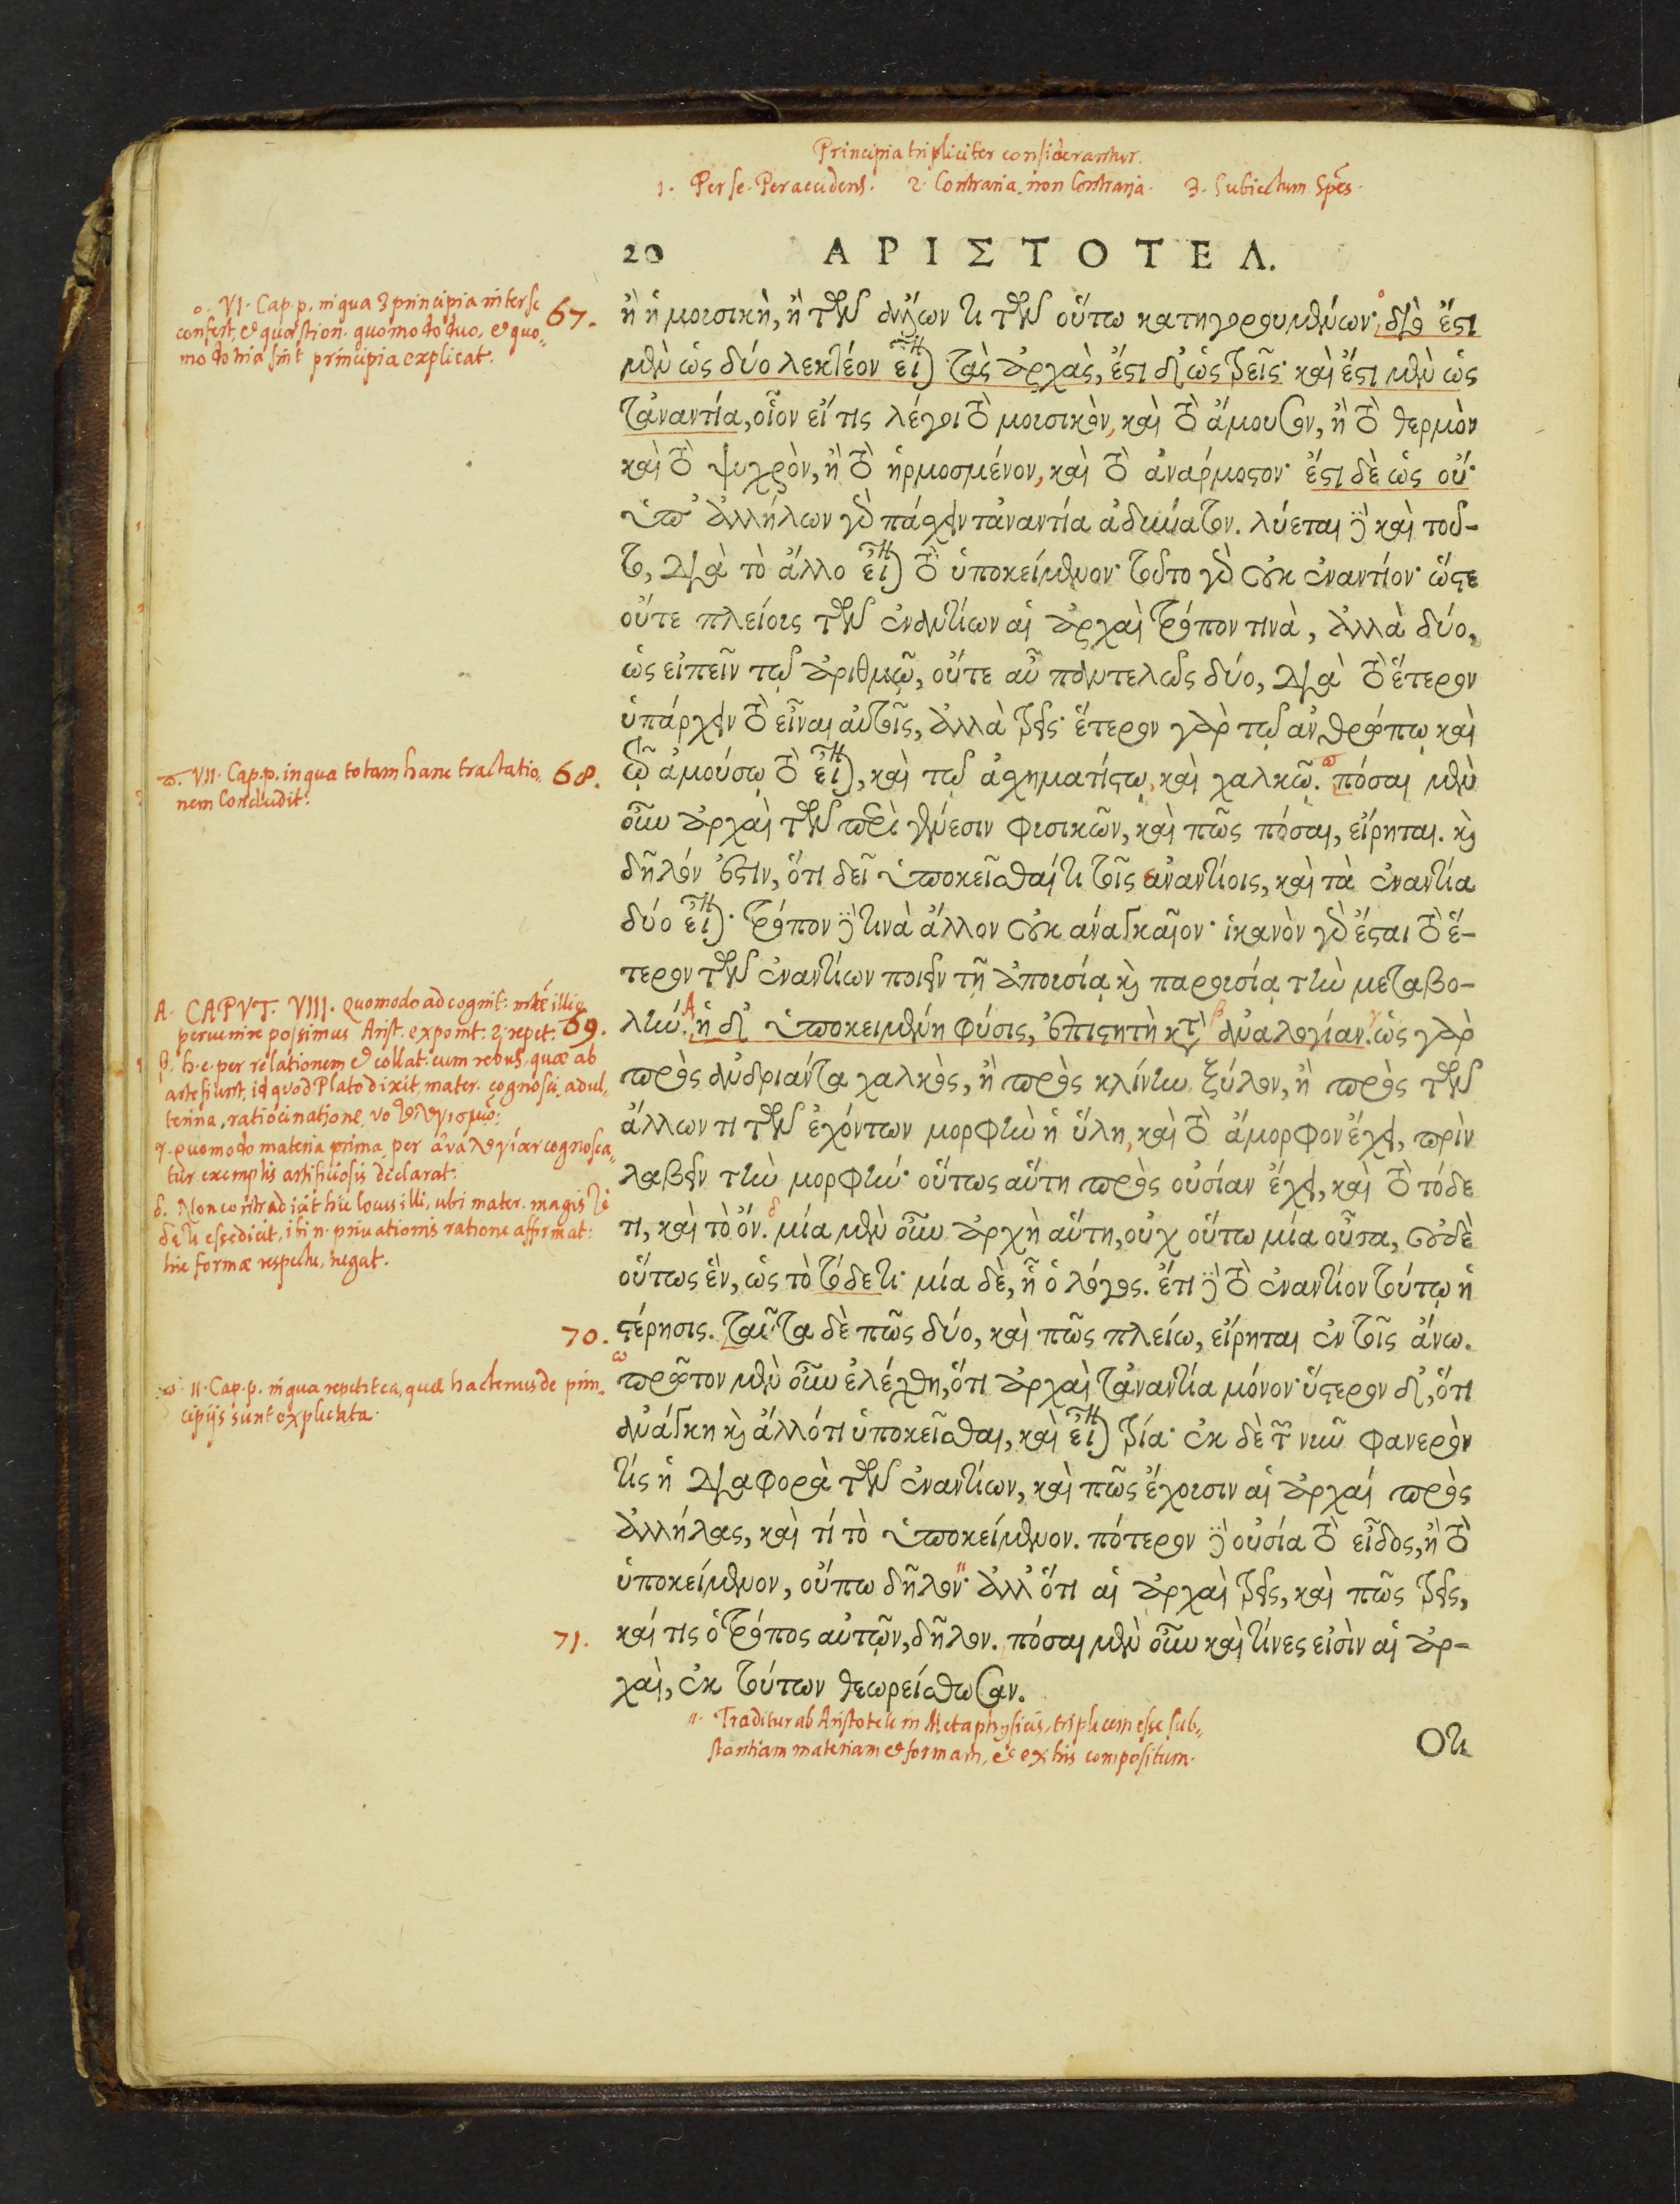 Principia tripliciter considerantur.
1. Per se. Per accidens. 2. Contraria. non Contraria. 3. Subiectum Spēs.
20 ΑΡΙΣΤΟΤΕΛ.
ο. VI. Cap. p. in qua 3 principia inter se
confert, et quæstion. quomodo duo, et quo„
modo tria sint principia explicat.
67.
ἢ ἡ μουσικὴ, ἢ τῶν ἄλλων τι τῶν οὕτω κατηγορουμένων· διὸ ἔστι
μὲν ὡς δύο λεκτέον εἶναι τὰς ἀρχὰς, ἔστι δ' ὡς τρεῖς· καὶ ἔστι μὲν ὡς
τἀναντία, οἷον εἴ τις λέγοι τὸ μουσικὸν, καὶ τὸ ἄμουσον, ἢ τὸ θερμὸν
καὶ τὸ ψυχρὸν, ἢ τὸ ἡρμοσμένον, καὶ τὸ ἀνάρμοστον· ἔστι δὲ ὡς οὔ·
ὑπ' ἀλλήλων γὰρ πάσχειν τἀναντία ἀδύνατον. λύεται δὲ καὶ τοῦ-
το, διὰ τὸ ἄλλο εἶναι τὸ ὑποκείμενον· τοῦτο γὰρ οὐκ ἐναντίον· ὥστε
οὔτε πλείους τῶν ἐναντίων αἱ ἀρχαὶ τρόπον τινὰ, ἀλλὰ δύο,
ὡς εἰπεῖν τῷ ἀριθμῷ, οὔτε αὖ παντελῶς δύο, διὰ τὸ ἕτερον
ὑπάρχειν τὸ εἶναι αὐτοῖς, ἀλλὰ τρεῖς· ἕτερον γὰρ τῷ ἀνθρώπῳ καὶ
ϖ. VII. Cap. p. in qua totam hanc tractatio„
nem Concludit.
68.
τῷ ἀμούσῳ τὸ εἶναι, καὶ τῷ ἀσχηματίστῳ, καὶ χαλκῷ. πόσαι μὲν
οὖν ἀρχαὶ τῶν περὶ γένεσιν φυσικῶν, καὶ πῶς πόσαι, εἴρηται. καὶ
δῆλόν ἐστιν, ὅτι δεῖ ὑποκεῖσθαί τι τοῖς ἐναντίοις, καὶ τὰ ἐναντία
δύο εἶναι· τρόπον δὲ τινὰ ἄλλον οὐκ ἀναγκαῖον· ἱκανὸν γὰρ ἔσται τὸ ἕ-
τερον τῶν ἐναντίων ποιεῖν τῇ ἀπουσίᾳ καὶ παρουσίᾳ τὴν μεταβο-
A. CAPVT. VIII. Quomodo ad cognit: illiq
pervenire possimus Arist. exponit: 2 repet:
69.
β. h. e. per relationem et collat. cum rebus, quæ ab
arte fiunt, id quod Plato dixit, mater. cognosci, adul„
terina, ratiocinatione, νοθῷ λογισμῷ.
γ. Quomodo materia prima, per ἀναλογίαν cognosca„
tur exemplis artificiosis declarat.
δ. Non contradicit hic locus illi, ubi mater. magis τό
δε τι esse dicit, ibi n. privationis ratione affirmat:
hic formæ respectu, negat.
λήν. ἡ δ' ὑποκειμένη φύσις, ἐπιστητὴ κατ' ἀναλογίαν. ὡς γὰρ
πρὸς ἀνδριάντα χαλκὸς, ἢ πρὸς κλίνην ξύλον, ἢ πρὸς τῶν
ἄλλων τι τῶν ἐχόντων μορφὴν ἡ ὕλη, καὶ τὸ ἄμορφον ἔχει, πρὶν
λαβεῖν τὴν μορφήν· οὕτως αὕτη πρὸς οὐσίαν ἔχει, καὶ τὸ τόδε
τι, καὶ τὸ ὄν. μία μὲν οὖν ἀρχὴ αὕτη, οὐχ οὕτω μία οὖσα, οὐδὲ
οὕτως ἓν, ὡς τὸ τόδε τι· μία δὲ, ᾗ ὁ λόγος. ἔτι δὲ τὸ ἐναντίον τούτῳ ἡ
70.
στέρησις. ταῦτα δὲ πῶς δύο, καὶ πῶς πλείω, εἴρηται ἐν τοῖς ἄνω.
ω. II. Cap. p. in qua repetit ea, quæ hactenus de prin„
cipijs sunt explicata.
πρῶτον μὲν οὖν ἐλέχθη, ὅτι ἀρχαὶ τἀναντία μόνον· ὕστερον δ', ὅτι
ἀνάγκη καὶ ἄλλό τι ὑποκεῖσθαι, καὶ εἶναι τρία· ἐκ δὲ τῶν νῦν φανερὸν
τίς ἡ διαφορὰ τῶν ἐναντίων, καὶ πῶς ἔχουσιν αἱ ἀρχαὶ πρὸς
ἀλλήλας, καὶ τί τὸ ὑποκείμενον. πότερον δὲ οὐσία τὸ εἶδος, ἢ τὸ
ὑποκείμενον, οὔπω δῆλον· ἀλλ' ὅτι αἱ ἀρχαὶ τρεῖς, καὶ πῶς τρεῖς,
71.
καί τις ὁ τρόπος αὐτῶν, δῆλον. πόσαι μὲν οὖν καὶ τίνες εἰσὶν αἱ ἀρ-
χαὶ, ἐκ τούτων θεωρείσθωσαν.
„. Traditur ab Aristotele in Metaphysicis, triplicem esse sub„
stantiam materiam et formam, et ex his compositum.
Ὅτι